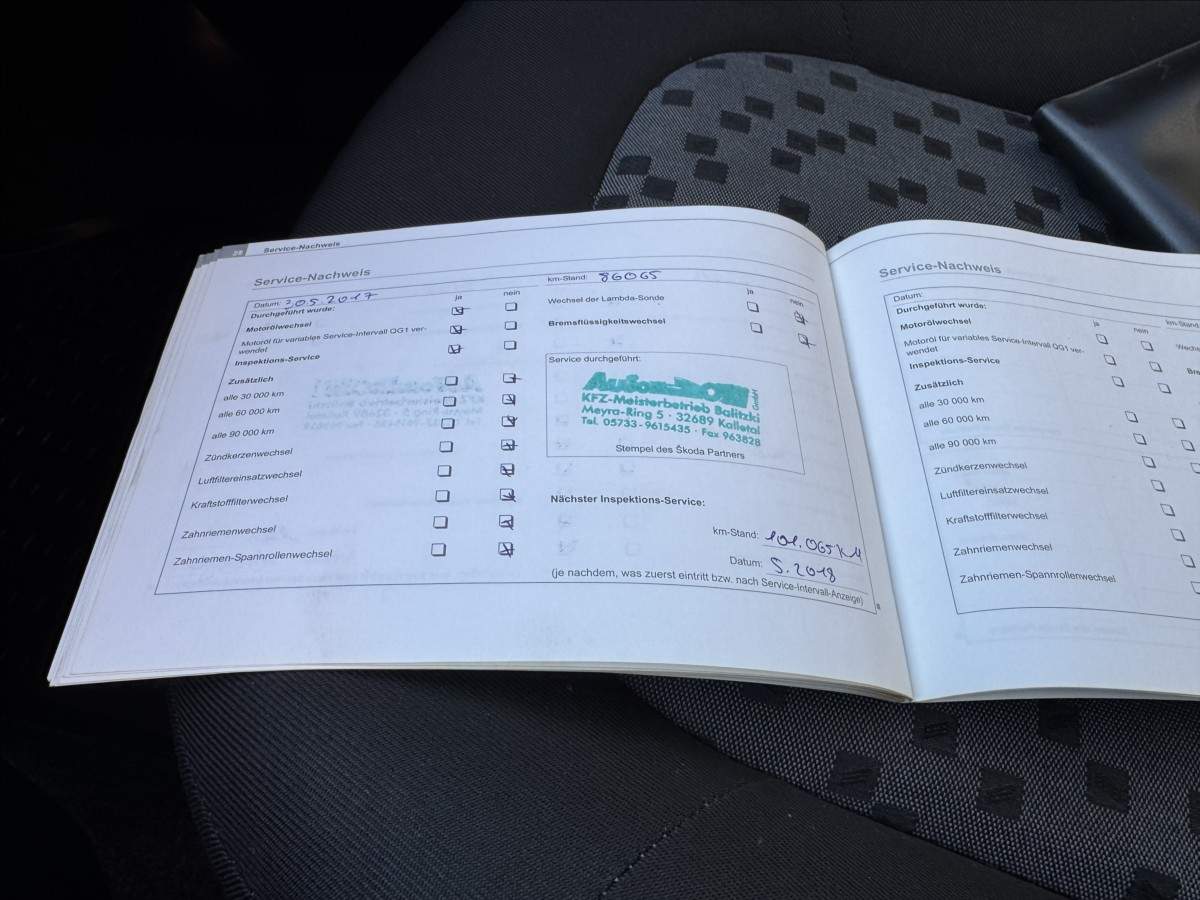 28 Service-Nachweis
Service-Nachweis
Datum: 05.2017
km-Stand: 86065
ja nein
Durchgeführt wurde:
Motorölwechsel
Motoröl für variables Service-Intervall QG1 ver-
wendet
Inspektions-Service
Zusätzlich
alle 30 000 km
alle 60 000 km
alle 90 000 km
Zündkerzenwechsel
Luftfiltereinsatzwechsel
Kraftstofffilterwechsel
Zahnriemenwechsel
Zahnriemen-Spannrollenwechsel
ja nein
Wechsel der Lambda-Sonde
Bremsflüssigkeitswechsel
Service durchgeführt:
GmbH
KFZ-Meisterbetrieb Balitzki
Meyra-Ring 5 · 32689 Kalletal
Tel. 05733-9615435 · Fax 963828
Stempel des Škoda Partners
Nächster Inspektions-Service:
km-Stand: 101.065 KM
Datum: 5.2018
(je nachdem, was zuerst eintritt bzw. nach Service-Intervall-Anzeige)
Service-Nachweis
Datum:
km-Stand
Durchgeführt wurde:
ja nein
Motorölwechsel
Motoröl für variables Service-Intervall QG1 ver-
wendet
Inspektions-Service
Zusätzlich
alle 30 000 km
alle 60 000 km
alle 90 000 km
Zündkerzenwechsel
Luftfiltereinsatzwechsel
Kraftstofffilterwechsel
Zahnriemenwechsel
Zahnriemen-Spannrollenwechsel